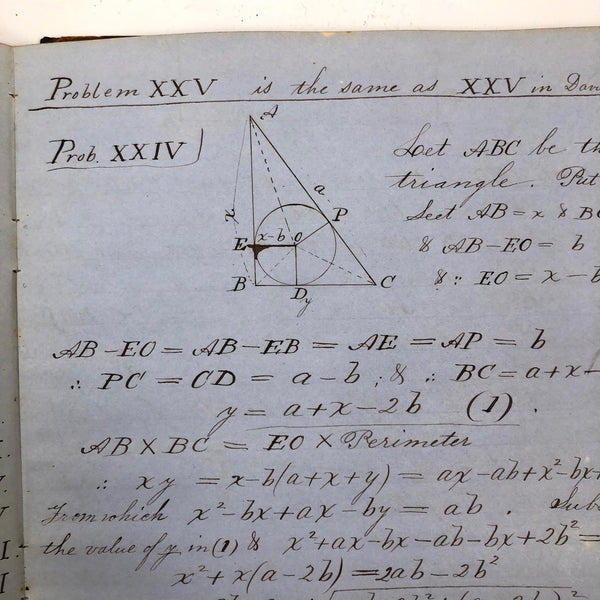 Problem XXV is the same as XXV in
Prob. XXIV
A
a
x
P
E
x-b
O
B
D
y
C
Let ABC be
triangle. Put
Seet AB = x & BC
& AB-EO = b
& ∵ EO = x - b
AB-EO = AB-EB = AE = AP = b
∴ PC = CD = a-b ; & ∴ BC = a+x-
y = a+x-2b (1).
AB × BC = EO × Perimeter
∴ xy = x-b(a+x+y) = ax-ab+x²-bx+
From which x²-bx+ax-by = ab.
the value of y in (1) & x²+ax-bx-ab-bx+2b² =
x²+x(a-2b) = 2ab-2b²